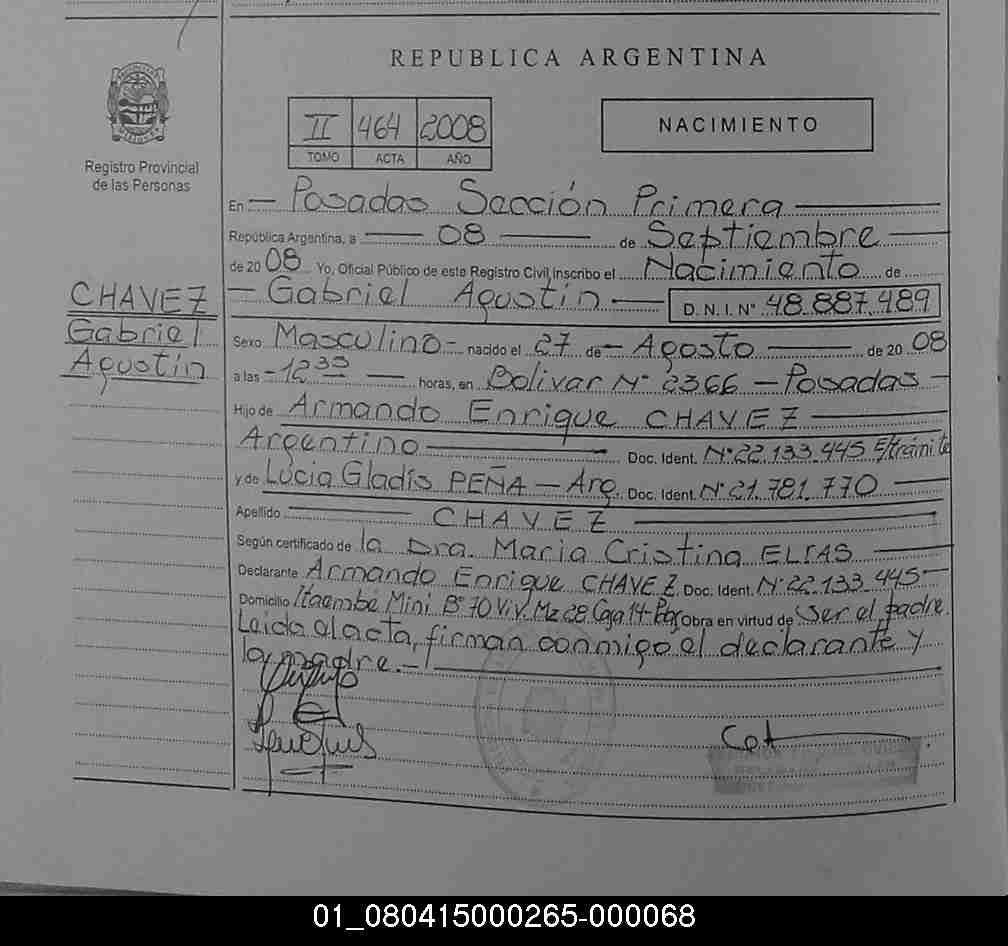 REPUBLICA ARGENTINA
II 464 2008
TOMO ACTA AÑO
NACIMIENTO
Registro Provincial
de las Personas
CHAVEZ
Gabriel
Agustín
En — Posadas Sección Primera —
República Argentina, a — 08 — de Septiembre —
de 2008 Yo, Oficial Público de este Registro Civil, inscribo el Nacimiento de
— Gabriel Agustín — D.N.I. N° 48.887.489
Sexo Masculino — nacido el 27 de — Agosto — de 2008
a las — 12 — horas, en Bolivar N° 2366 — Posadas —
Hijo de Armando Enrique CHAVEZ —
Argentino — Doc. Ident. N° 22.133.445 E/trámite
y de Lucia Gladis PEÑA — Arg. Doc. Ident. N° 21.781.770 —
Apellido — CHAVEZ —
Según certificado de la Dra. Maria Cristina ELIAS —
Declarante Armando Enrique CHAVEZ Doc. Ident. N° 22.133.445 —
Domicilio Itaembé Mini B° 70 Viv. Mz 28 Casa 14 - Obra en virtud de Ser el padre.
Leida el acta, firman conmigo el declarante y
la madre. —
01_080415000265-000068